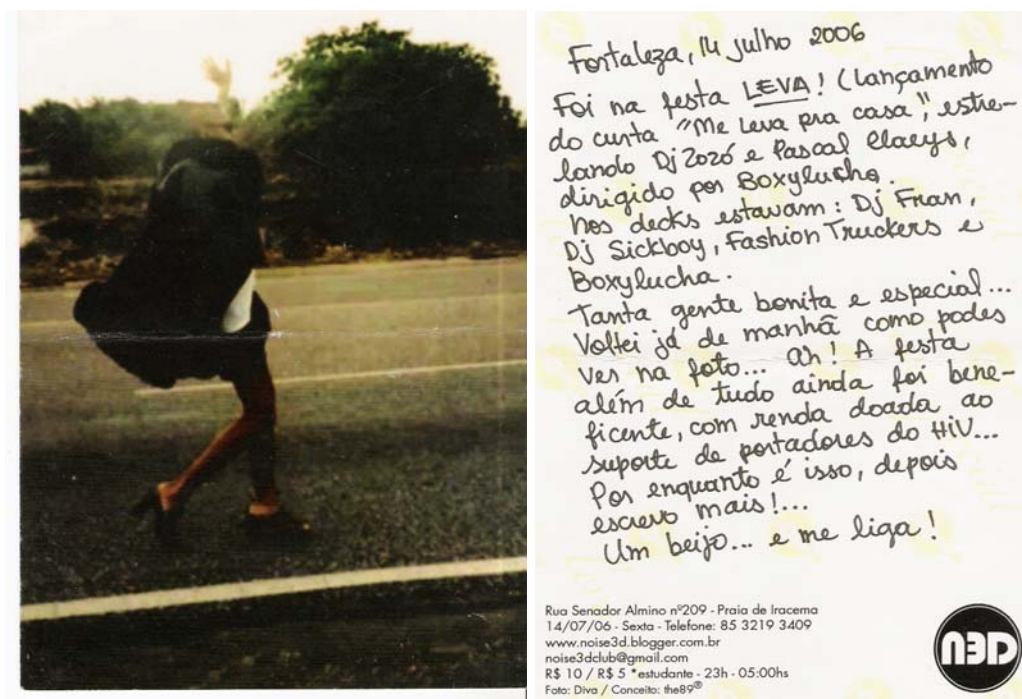 Fortaleza, 14 julho 2006
Foi na festa LEVA! (lançamento
do curta "Me Leva pra casa", estre-
lando Dj Zozó e Pascal Claeys,
dirigido por Boxylucha.
Nos decks estavam: Dj Fran,
Dj Sickboy, Fashion Truckers e
Boxylucha.
Tanta gente bonita e especial...
Voltei já de manhã como podes
ver na foto... ah! A festa
além de tudo ainda foi bene-
ficente, com renda doada ao
suporte de portadores do HIV...
Por enquanto é isso, depois
escrevo mais!...
Um beijo... e me liga!
Rua Senador Almino nº209 - Praia de Iracema
14/07/06 - Sexta - Telefone: 85 3219 3409
www.noise3d.blogger.com.br
noise3dclub@gmail.com
R$ 10 / R$ 5 *estudante - 23h - 05:00hs
Foto: Diva / Conceito: the89®
N3D